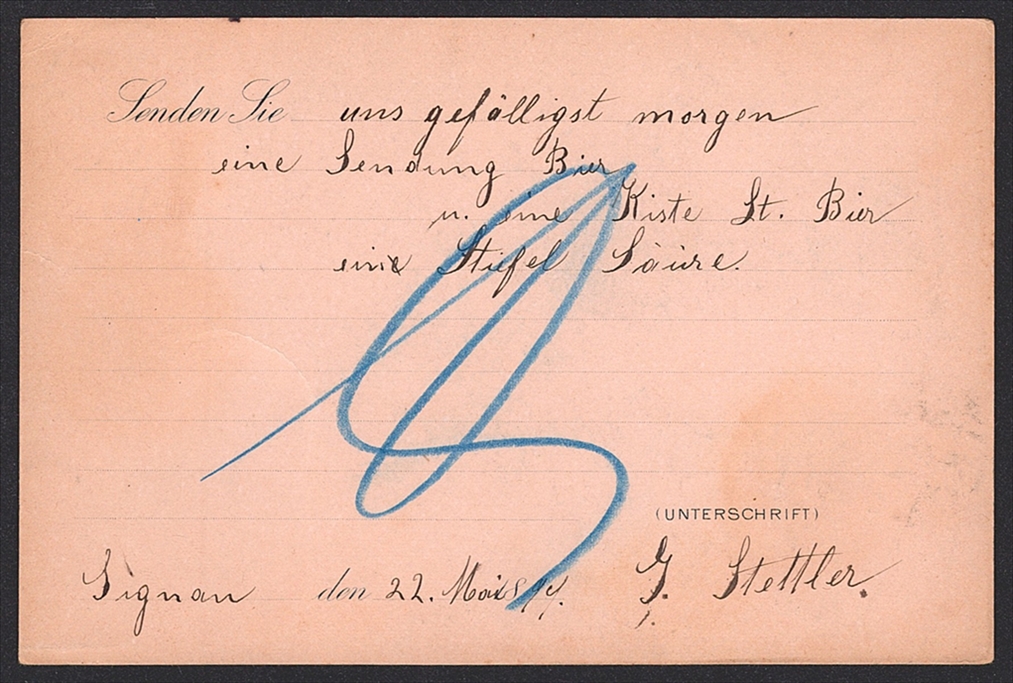 Senden Sie uns gefälligst morgen
eine Sendung Bier
u. eine Kiste St. Bier
eine Stiefel Säure.
(UNTERSCHRIFT)
Signau den 22. Mai 94. G. Stettler.